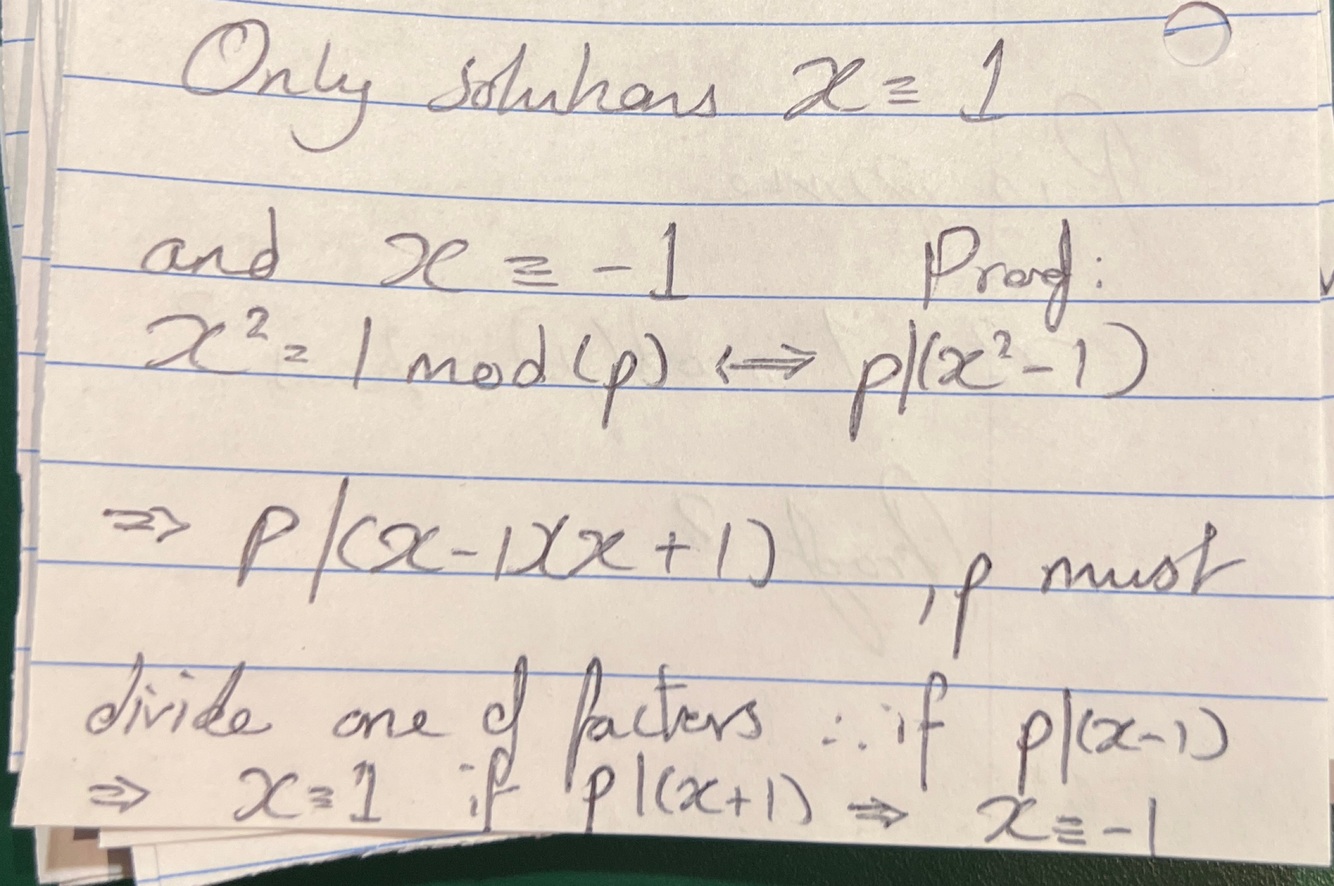 Only solutions x ≡ 1
and x ≡ -1 Proof:
x² = 1 mod (p) ⟺ p|(x²-1)
⇒ p|(x-1)(x+1) , p must
divide one of factors ∴ if p|(x-1)
⇒ x≡1 if p|(x+1) ⇒ x≡-1